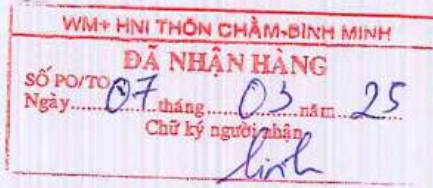 WM+ HNI THÔN CHẦM-BÌNH MINH
ĐÃ NHẬN HÀNG
SỐ PO/TO
Ngày........07....tháng......03....năm...25
Chữ ký người nhận
Linh